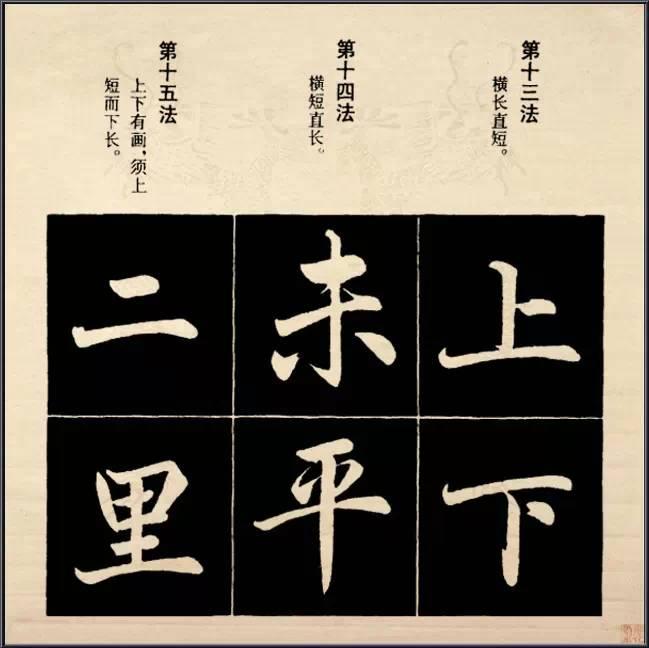 第十三法
横长直短。
上
下
第十四法
横短直长。
未
平
第十五法
上下有画，须上
短而下长。
二
里